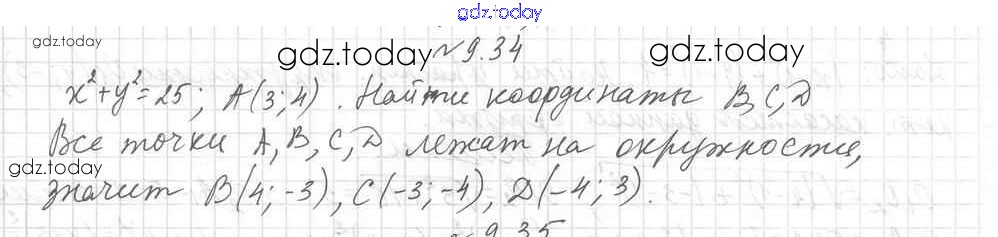 gdz.today
gdz.today
gdz.today №9.34 gdz.today
x²+y²=25; A(3;4). Найти координаты B,C,D
Все точки A,B,C,D лежат на окружности,
gdz.today
значит B(4;-3), C(-3;-4), D(-4;3).
№9.35